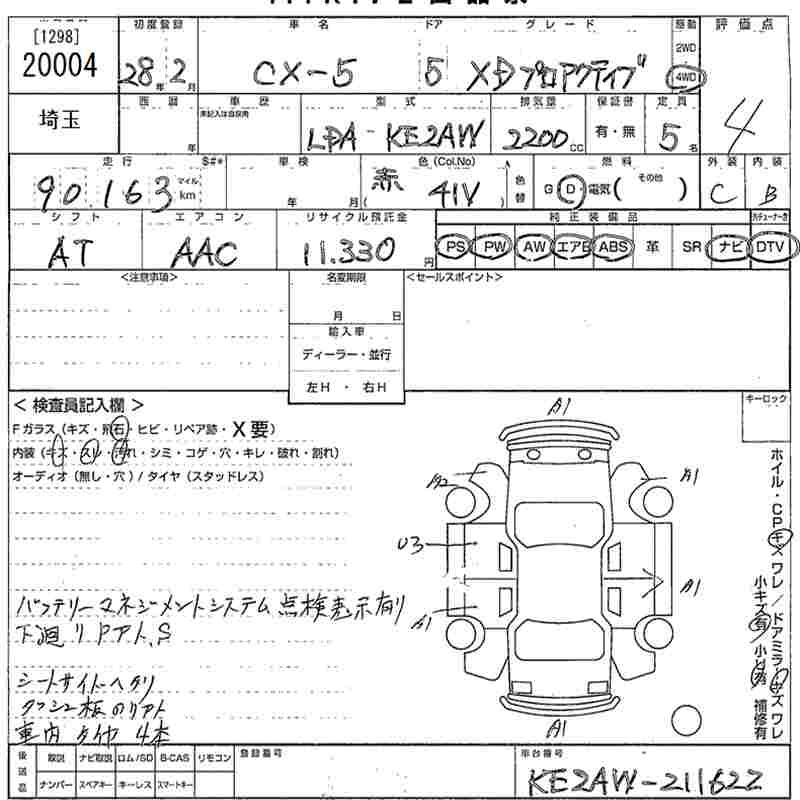 [1298]
20004
初度登録
28年2月
車名
CX-5
ドア
5
グレード
XDプロアクティブ
駆動
2WD
4WD
評価点
4
埼玉
西暦
年
車歴
未記入は自家用
型式
LDA-KE2AW
排気量
2200cc
保証書
有・無
定員
5名
走行
S#*
90,163
マイル
km
車検
年 月
色(Col.No)
赤 41V
色替
燃料
G D 電気( その他 )
外装
C
内装
B
シフト
AT
エアコン
AAC
リサイクル預託金
11,330円
純正装備品
PS PW AW エアB ABS 革 SR ナビ DTV
<注意事項>
名変期限
月 日
輸入車
ディーラー・並行
左H・右H
<セールスポイント>
<検査員記入欄>
Fガラス(キズ・飛石・ヒビ・リペア跡・X要)
内装(キズ・スレ・汚れ・シミ・コゲ・穴・キレ・破れ・割れ)
オーディオ(無し・穴)/タイヤ(スタッドレス)
バッテリーマネジメントシステム点検表示有り
シートサイドヘタリ
車内 タイヤ 4本
キーロック
A1
A2
A1
U3
A1
A1
A1
ホイル・CPキズ ワレ/ドアミラーキズ ワレ
小キズ有 補修有
後送品
取説 ナビ取説 ロム/SD B-CAS リモコン
ナンバー スペアキー キーレス スマートキー
登録番号
車台番号
KE2AW-211622